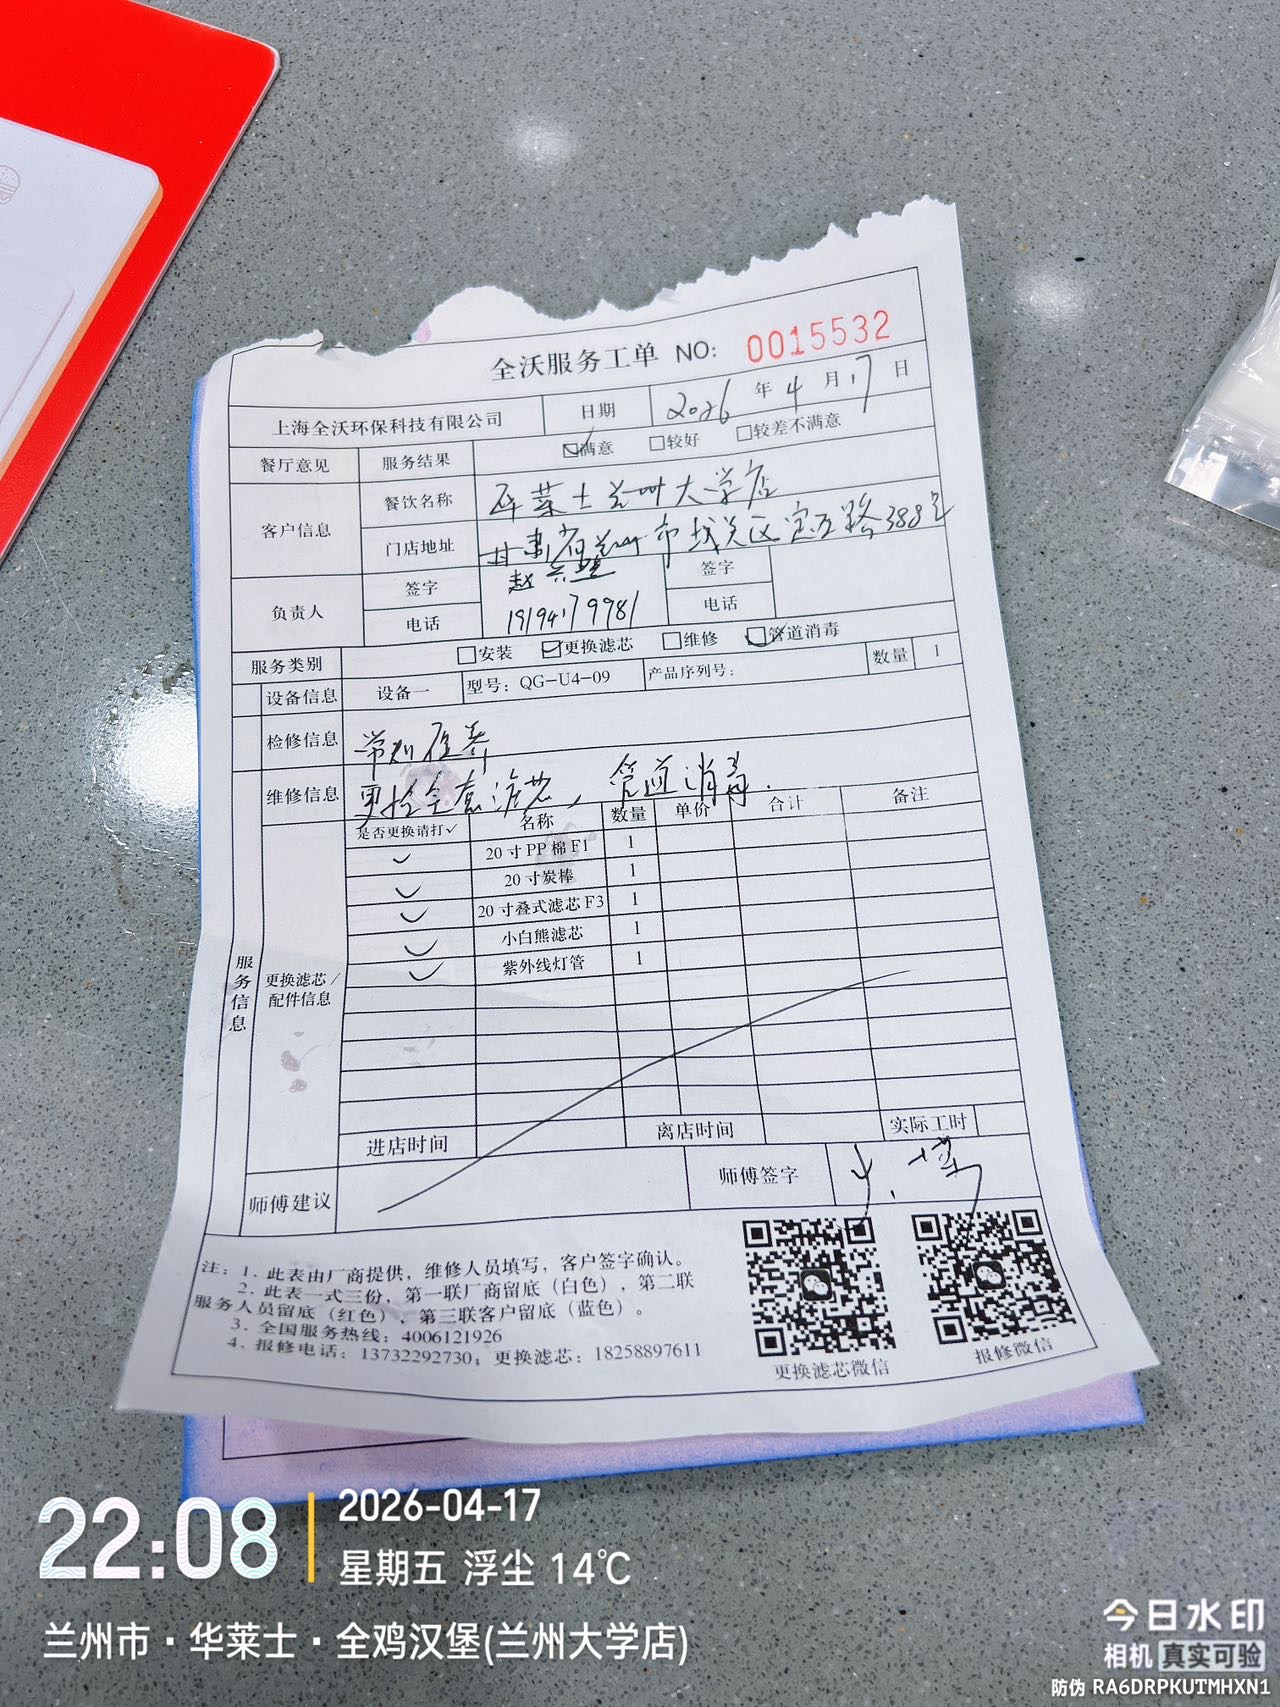 全沃服务工单 NO: 0015532
上海全沃环保科技有限公司 日期 2026 年 4 月 17 日
餐厅意见 服务结果 ☑满意 □较好 □较差不满意
客户信息 餐饮名称 华莱士兰州大学店
门店地址 甘肃省兰州市城关区定西路388号
负责人 签字 赵 签字
电话 19194179981 电话
服务类别 □安装 ☑更换滤芯 □维修 ☑管道消毒
设备信息 设备一 型号: QG-U4-09 产品序列号: 数量 1
检修信息 常规保养
维修信息 更换全套滤芯, 管道消毒.
服务信息
更换滤芯/配件信息
是否更换请打✓ 名称 数量 单价 合计 备注
✓ 20寸PP棉F1 1
✓ 20寸炭棒 1
✓ 20寸叠式滤芯F3 1
✓ 小白熊滤芯 1
✓ 紫外线灯管 1
进店时间 离店时间 实际工时
师傅建议 师傅签字
注: 1. 此表由厂商提供, 维修人员填写, 客户签字确认。
2. 此表一式三份, 第一联厂商留底(白色), 第二联
服务人员留底(红色), 第三联客户留底(蓝色)。
3. 全国服务热线: 4006121926
4. 报修电话: 13732292730; 更换滤芯: 18258897611
更换滤芯微信 报修微信
22:08
2026-04-17
星期五 浮尘 14℃
兰州市·华莱士·全鸡汉堡(兰州大学店)
今日水印
相机 真实可验
防伪 RA6DRPKUTMHXN1